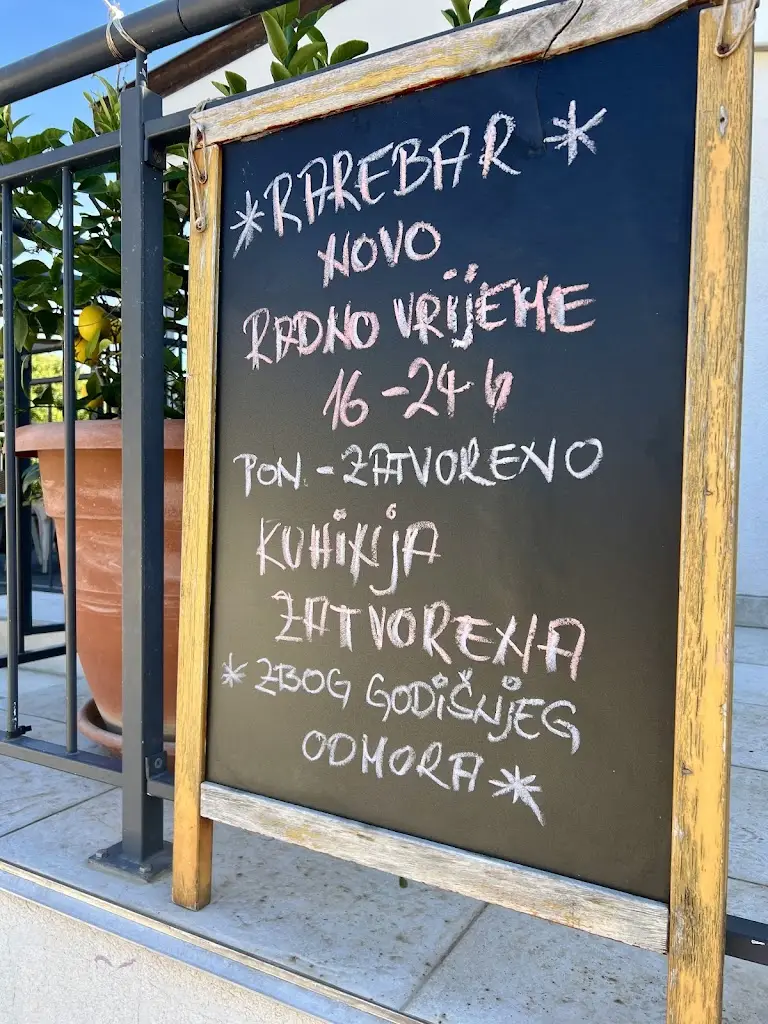 *RAREBAR*
NOVO
RADNO VRIJEME
16-24 h
PON.-ZATVORENO
KUHINJA
ZATVORENA
*ZBOG GODIŠNJEG
ODMORA*